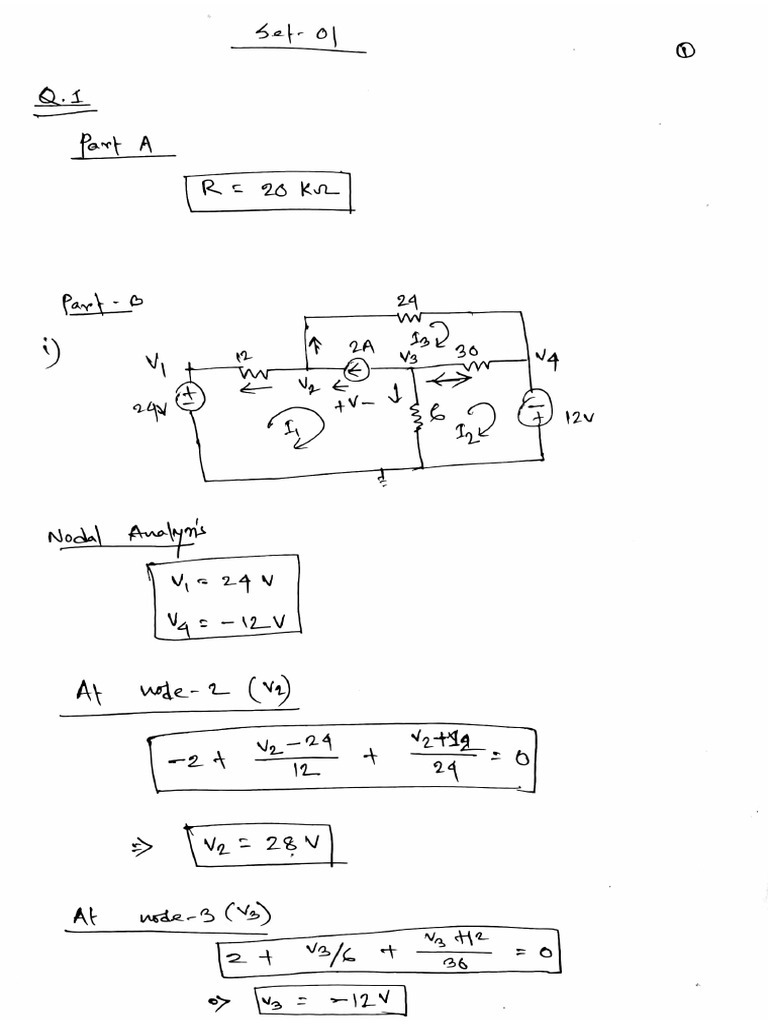 Set-01
①
Q.1
Part A
R = 20 KΩ
Part-B
i)
24
I3
V1 12 V2 2A V3 30 V4
24V + - I1 + V - 6 I2 - + 12V
Nodal Analysis
V1 = 24 V
V4 = -12 V
At node-2 (V2)
-2 + (V2-24)/12 + (V2+12)/24 = 0
⇒ V2 = 28 V
At node-3 (V3)
2 + V3/6 + (V3+12)/30 = 0
⇒ V3 = -12 V